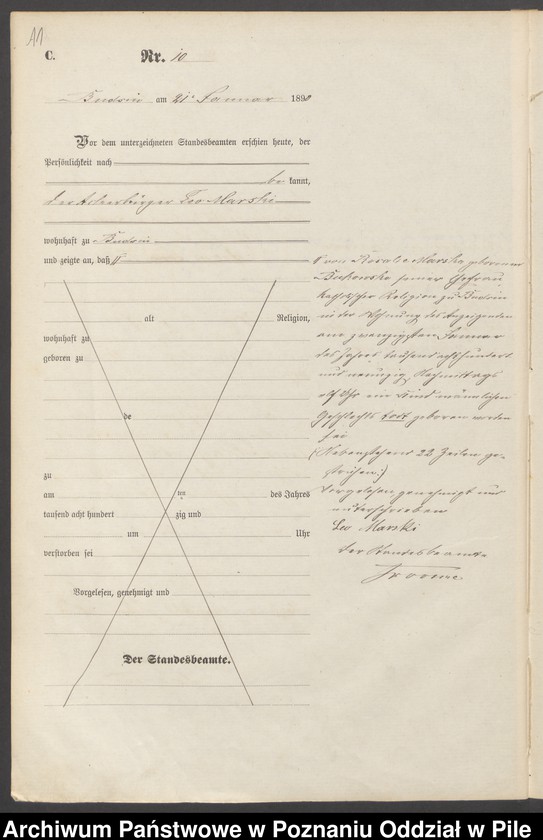 11
C.
Nr. 10
Budsin am 21. Januar 1890
Vor dem unterzeichneten Standesbeamten erschien heute, der
Persönlichkeit nach
be kannt,
der Ackerbürger Leo Marski
wohnhaft zu Budsin
und zeigte an, daß
von der Marska geborenen
seiner Ehefrau
katholischer Religion zu Budsin
in der Wohnung des Anzeigenden
am zwanzigsten Januar
des Jahres tausend achthundert
und neunzig Nachmittags
elf Uhr ein Kind männlichen
Geschlechts todt geboren worden
sei
(Nebenstehend 22 Zeilen ge-
strichen.)
Vorgelesen genehmigt und
unterschrieben
Leo Marski
Der Standesbeamte
alt Religion,
wohnhaft zu
geboren zu
de
zu
am ten des Jahres
tausend acht hundert zig und
um Uhr
verstorben sei
Vorgelesen, genehmigt und
Der Standesbeamte.
Archiwum Państwowe w Poznaniu Oddział w Pile